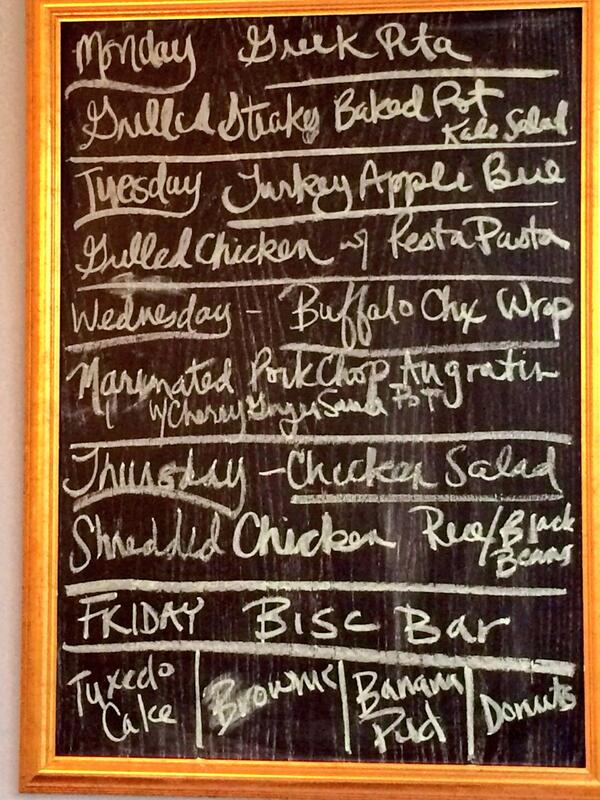 Monday Greek Pita
Grilled Steak Baked Pot
Kale Salad
Tuesday Turkey Apple Brie
Grilled Chicken w/ Pesto Pasta
Wednesday - Buffalo Chx Wrap
Marinated Pork Chop Augratin
w/ Cherry Ginger Sauce Pot
Thursday - Chicken Salad
Shredded Chicken Rice/Black
Beans
FRIDAY BISC Bar
Tuxedo Brownie Banana Donuts
Cake Pud